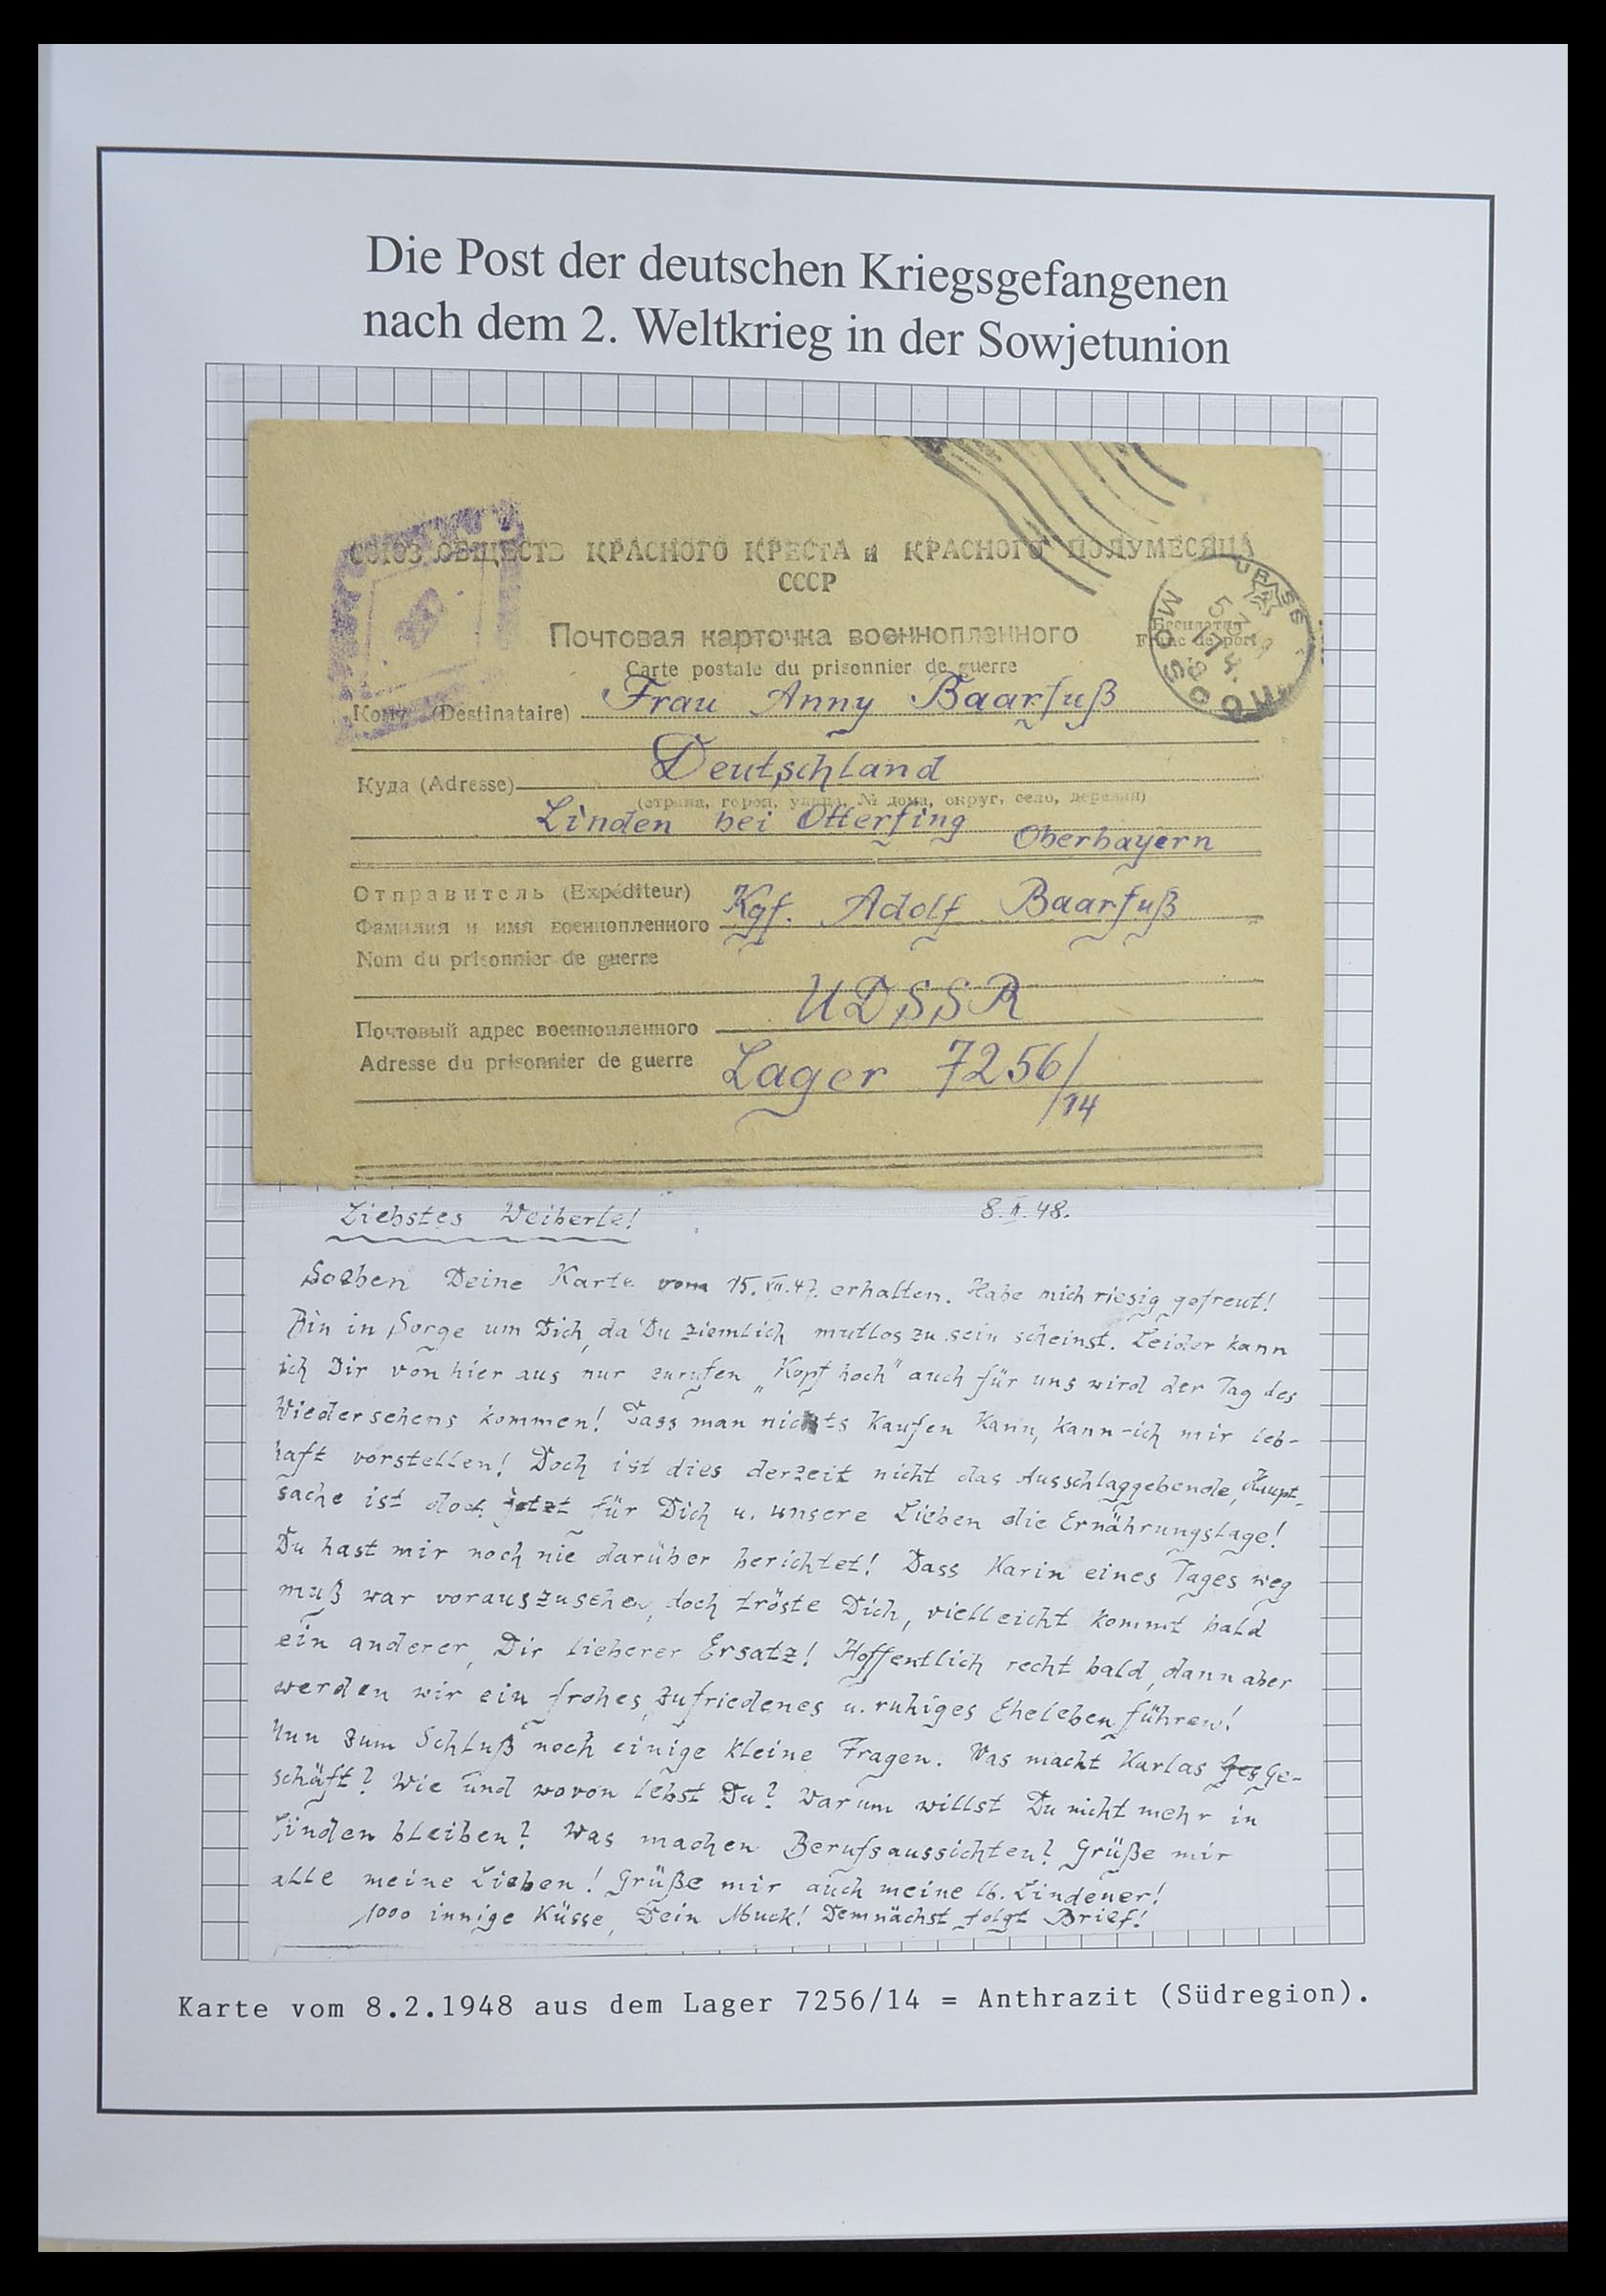 Die Post der deutschen Kriegsgefangenen
nach dem 2. Weltkrieg in der Sowjetunion
СОЮЗ ОБЩЕСТВ КРАСНОГО КРЕСТА и КРАСНОГО ПОЛУМЕСЯЦА
СССР
Почтовая карточка военнопленного
Бесплатно
Franc de port
MOSCOU URSS
Carte postale du prisonnier de guerre
Кому (Destinataire) Frau Anny Baarfuß
Куда (Adresse) Deutschland
(страна, город, улица, № дома, округ, село, деревня)
Linden bei Otterfing Oberbayern
Отправитель (Expéditeur)
Фамилия и имя военнопленного Kgf. Adolf Baarfuß
Nom du prisonnier de guerre
UDSSR
Почтовый адрес военнопленного
Adresse du prisonnier de guerre Lager 7256/
/14
Liebstes Weiberle! 8.II.48.
Soeben Deine Karte vom 15.VII.47. erhalten. Habe mich riesig gefreut!
Bin in Sorge um Dich, da Du ziemlich mutlos zu sein scheinst. Leider kann
ich Dir von hier aus nur zurufen „Kopf hoch" auch für uns wird der Tag des
Wiedersehens kommen! Dass man nichts kaufen kann, kann ich mir leb-
haft vorstellen! Doch ist dies derzeit nicht das Ausschlaggebende, Haupt-
sache ist doch jetzt für Dich u. unsere Lieben die Ernährungslage!
Du hast mir noch nie darüber berichtet! Dass Karin eines Tages weg
muß war vorauszusehen, doch tröste Dich, vielleicht kommt bald
ein anderer, Dir lieberer Ersatz! Hoffentlich recht bald, dann aber
werden wir ein frohes, zufriedenes u. ruhiges Eheleben führen!
Nun zum Schluß noch einige kleine Fragen. Was macht Karlas Ge-
schäft? Wie und wovon lebst Du? Warum willst Du nicht mehr in
Linden bleiben? Was machen Berufsaussichten? Grüße mir
alle meine Lieben! Grüße mir auch meine lb. Lindener!
1000 innige Küsse, Dein Muck! Demnächst folgt Brief!
Karte vom 8.2.1948 aus dem Lager 7256/14 = Anthrazit (Südregion).